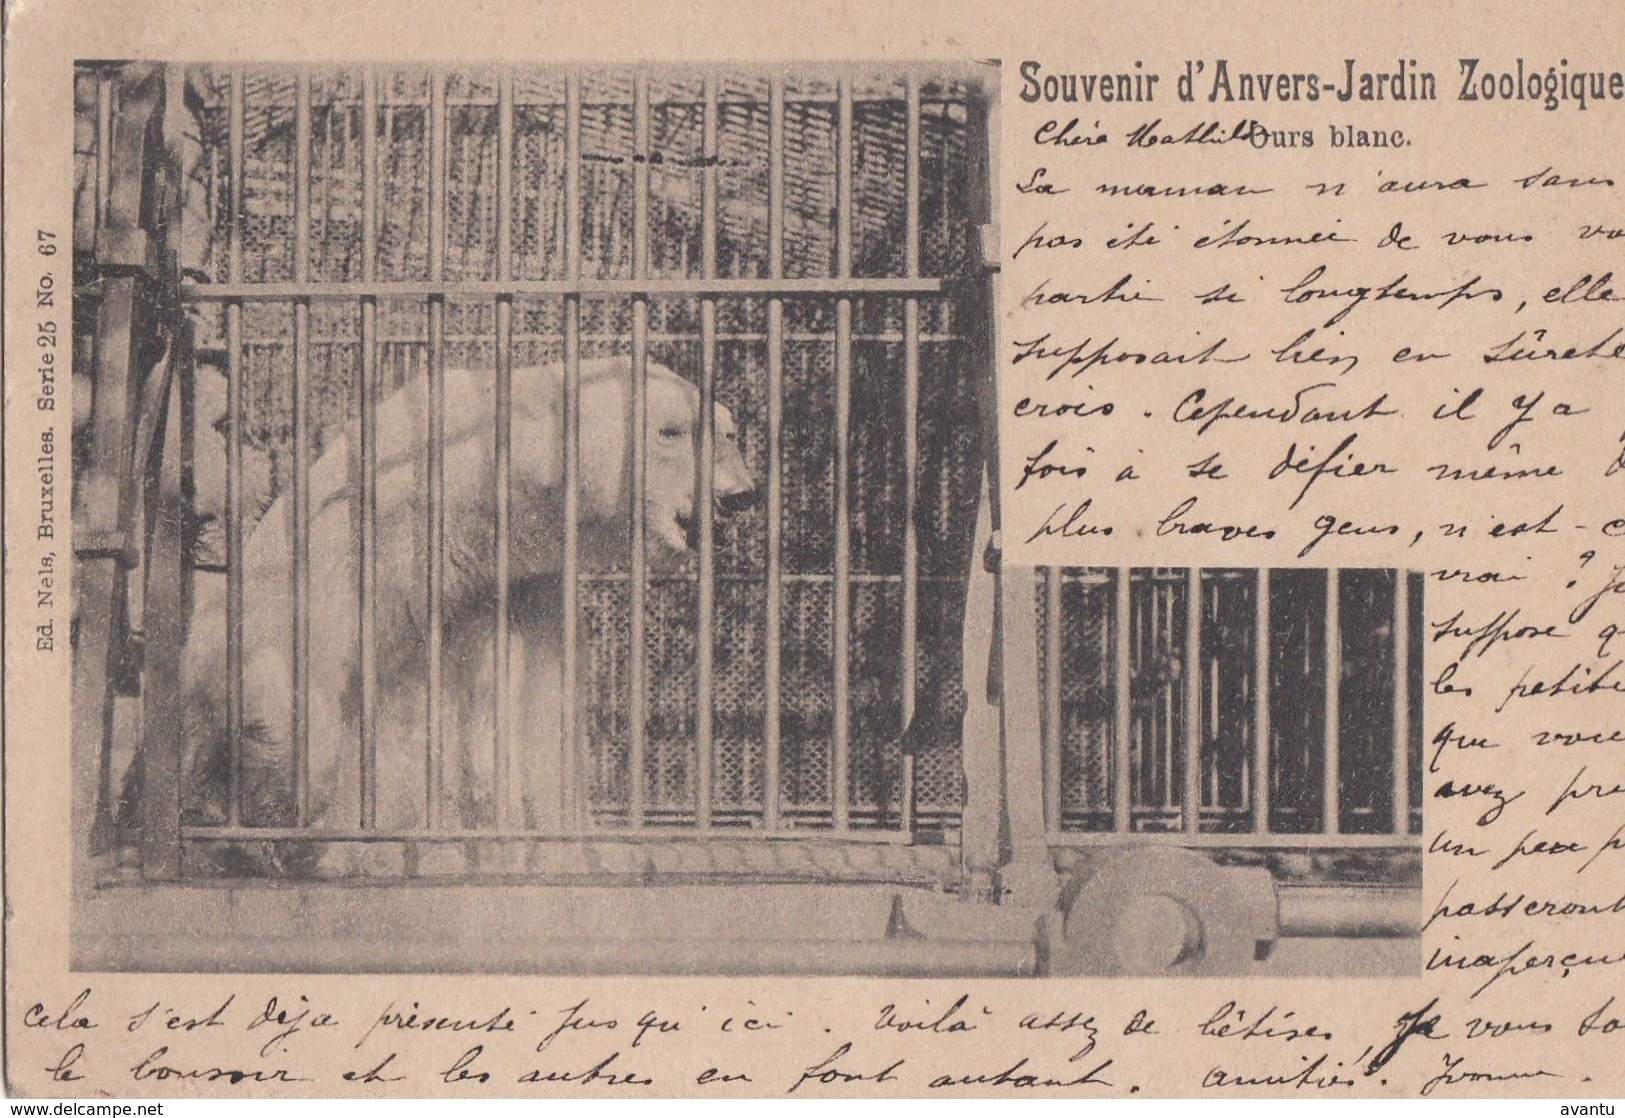 Souvenir d'Anvers-Jardin Zoologique
Ours blanc.
Chère Mathilde
La maman n'aura sans
pas été étonnée de vous
partie si longtemps, elle
supposait bien en sûreté
crois. Cependant il y a
fois à se défier même
plus braves gens, n'est-c
vrai ? Je
suppose q
les petite
que vous
avez pr
un peu p
passeront
inaperçu
cela s'est déja présenté jusqu'ici. Voilà assez de bêtises, Je vous
le bonsoir et les autres en font autant. Amitiés. Yvonne.
Ed. Nels, Bruxelles. Serie 25 No. 67
delcampe.net
avantu